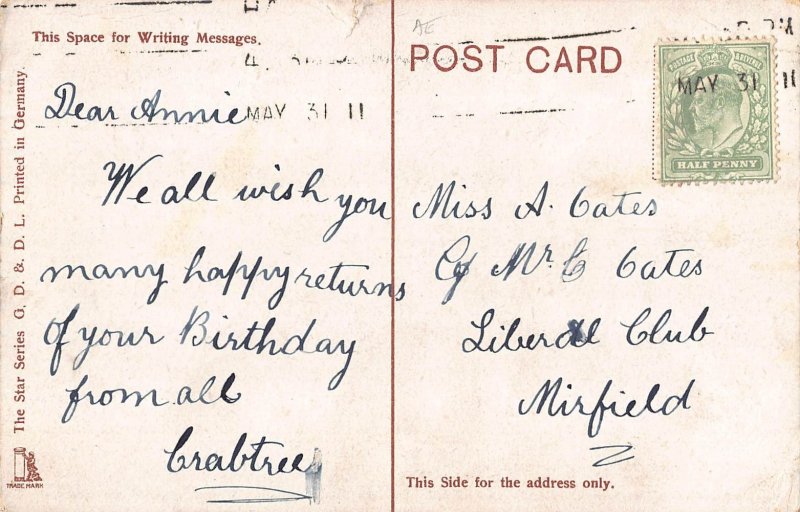 This Space for Writing Messages.
Dear Annie
We all wish you
many happy returns
of your Birthday
from all
Crabtree
The Star Series G. D. & D. L. Printed in Germany.
TRADE MARK
POST CARD
AE
MAY 31 11
MAY 31 11
POSTAGE & REVENUE
HALF PENNY
Miss A. Oates
C/o Mr. C Oates
Liberal Club
Mirfield
This Side for the address only.